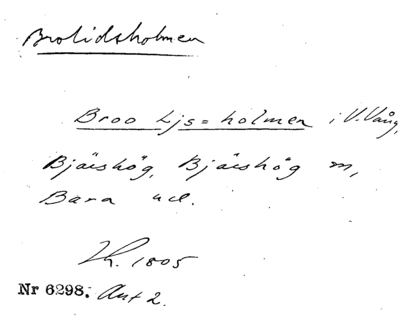 Brolidsholmen
Broo Ljs=holmen i V. Vång,
Bjäishög, Bjäishög m,
Bara ud.
Lk. 1805
Nr 6298. Ant 2.